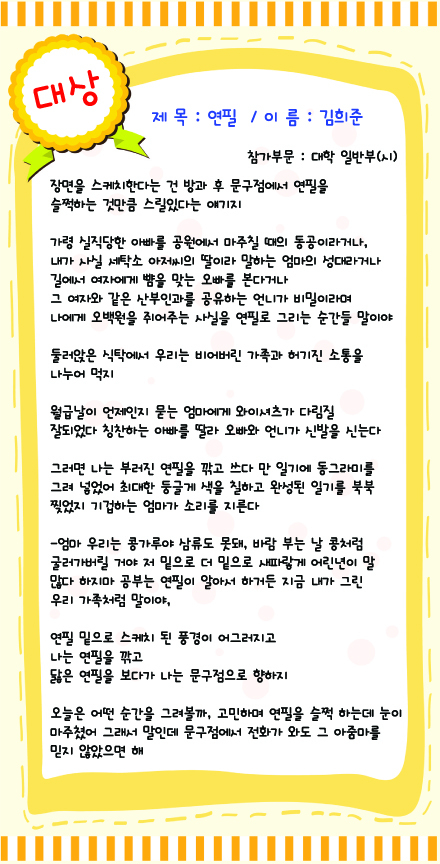 대상
제 목 : 연필 / 이 름 : 김희준
참가부문 : 대학 일반부(시)
장면을 스케치한다는 건 방과 후 문구점에서 연필을
슬쩍하는 것만큼 스릴있다는 얘기지
가령 실직당한 아빠를 공원에서 마주칠 때의 동공이라거나,
내가 사실 세탁소 아저씨의 딸이라 말하는 엄마의 성대라거나
길에서 여자에게 뺨을 맞는 오빠를 본다거나
그 여자와 같은 산부인과를 공유하는 언니가 비밀이라며
나에게 오백원을 쥐어주는 사실을 연필로 그리는 순간들 말이야
둘러앉은 식탁에서 우리는 비어버린 가족과 허기진 소통을
나누어 먹지
월급날이 언제인지 묻는 엄마에게 와이셔츠가 다림질
잘되었다 칭찬하는 아빠를 딸라 오빠와 언니가 신발을 신는다
그러면 나는 부러진 연필을 깎고 쓰다 만 일기에 동그라미를
그려 넣었어 최대한 둥글게 색을 칠하고 완성된 일기를 북북
찢었지 기겁하는 엄마가 소리를 지른다
-엄마 우리는 콩가루야 삼류도 못돼, 바람 부는 날 콩처럼
굴러가버릴 거야 저 밑으로 더 밑으로 새파랗게 어린년이 말
많다 하지마 공부는 연필이 알아서 하거든 지금 내가 그린
우리 가족처럼 말이야,
연필 밑으로 스케치 된 풍경이 어그러지고
나는 연필을 깎고
닳은 연필을 보다가 나는 문구점으로 향하지
오늘은 어떤 순간을 그려볼까, 고민하며 연필을 슬쩍 하는데 눈이
마주쳤어 그래서 말인데 문구점에서 전화가 와도 그 아줌마를
믿지 않았으면 해